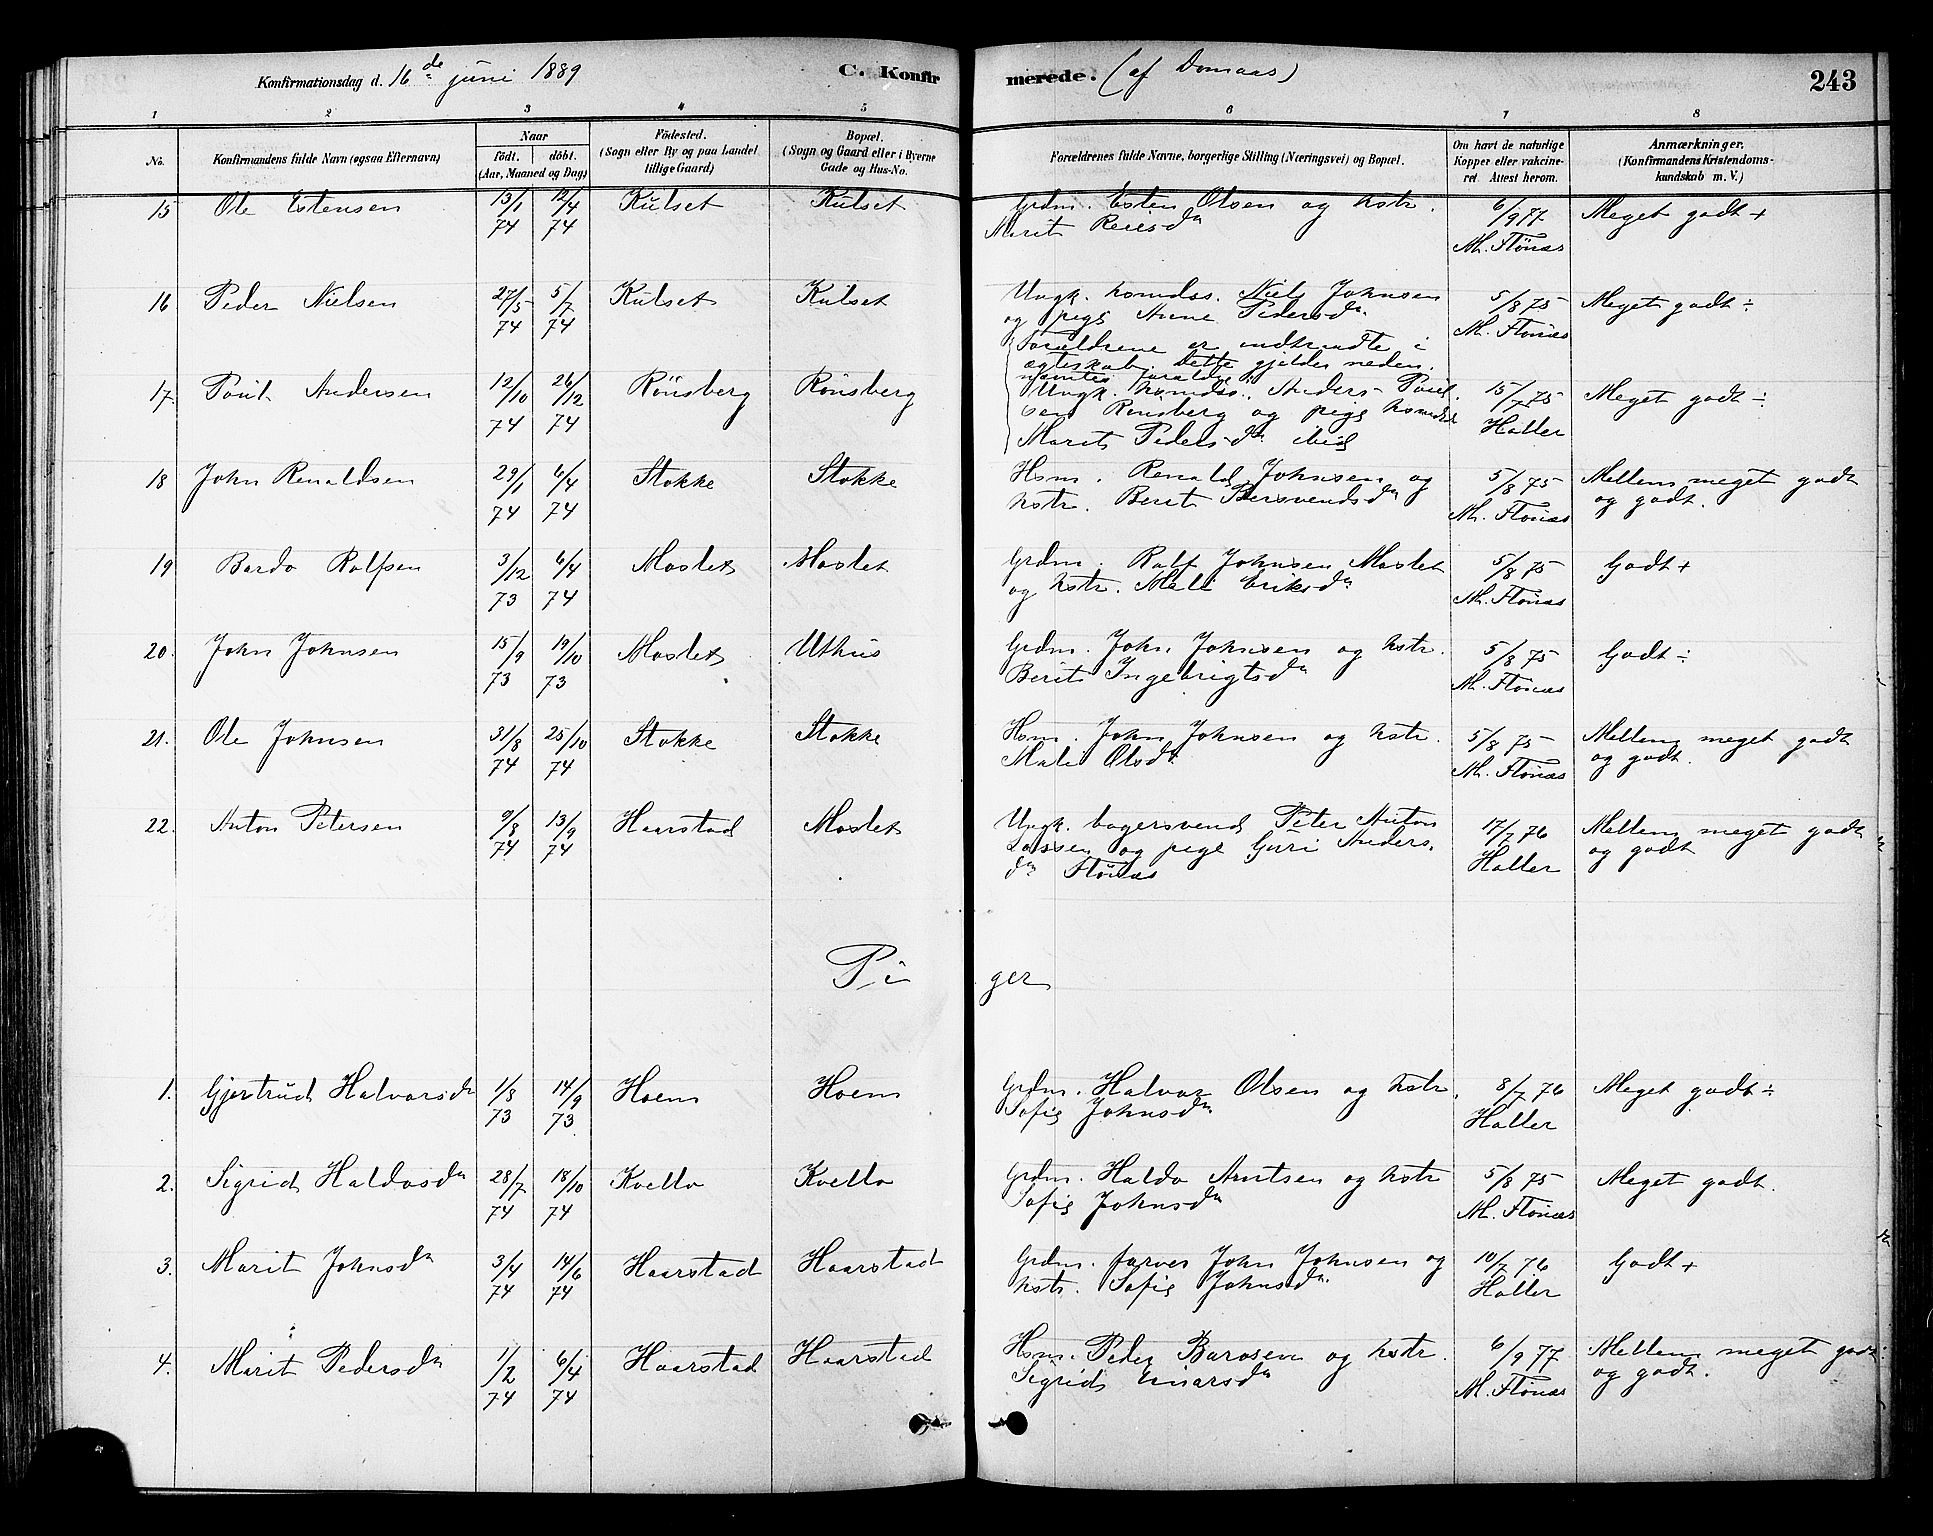 Konfirmationsdag d. 16de juni 1889 C. Konfirmerede. (af Domaas) 243
1 2 3 4 5 6 7 8
No. Konfirmandens fulde Navn (ogsaa Efternavn) Naar födt. döbt. (Aar, Maaned og Dag) Födested. (Sogn eller By og paa Landet tillige Gaard) Bopæl. (Sogn og Gaard eller i Byerne Gade og Hus-No. Forældrenes fulde Navne, borgerlige Stilling (Næringsvei) og Bopæl. Om havt de naturlige Kopper eller vakcineret. Attest herom. Anmærkninger. (Konfirmandens Kristendomskundskab m. V.)
15 Ole Estensen 13/1 74 12/4 74 Kulset Kulset Grdm. Esten Olsen og hstr. 6/9 77 Meget godt +
Marit Reiersdn M. Flönæs
16 Peder Nielsen 27/5 74 5/7 74 Kulset Kulset Ungk. hsmdss. Niels Johnsen 5/8 75 Meget godt ÷
og pige Anne Pedersdn. M. Flönæs
Forældrene er indtraadte i
egteskab. Dette gjelder neden-
nævnte forældre
17. Poul Andersen 12/10 74 26/12 74 Rönsberg Rönsberg Ungk. hsmdss. Anders Poul- 15/7 75 Meget godt ÷
sen Rönsberg og pige hsmds Haller
Marit Pedersdn ibid
18 John Renaldsen 29/1 74 6/4 74 Stokke Stokke Hsm. Renald Johnsen og 5/8 75 Mellem meget godt
hstr. Berit Bersvendsdn M. Flönæs og godt.
19 Bardo Rolfsen 3/12 73 6/4 74 Moslet Moslet Grdm. Rolf Johnsen Moslet 5/8 75 Godt +
og hstr. Mali Eriksdn M. Flönæs
20. John Johnsen 15/9 73 19/10 73 Moslet Uthus Grdm. John Johnsen og hstr. 5/8 75 Godt ÷
Berit Ingebrigtsdn M. Flönæs
21. Ole Johnsen 31/8 74 25/10 74 Stokke Stokke Hsm. John Johnsen og hstr. 5/8 75 Mellem meget godt
Mali Olsdn M. Flönæs og godt.
22. Anton Petersen 9/8 74 13/9 74 Haarstad Moslet Ungk. bagersvend Peter Anton 17/7 76 Mellem meget godt
og pige Guri Anders- Haller og godt
dn Flönæs
Piger
1. Gjertrud Halvorsdn 1/8 73 14/9 73 Hoem Hoem Grdm. Halvor Olsen og hstr. 8/7 76 Meget godt ÷
Sofie Johnsdn Haller
2. Sigrid Haldosdn 28/7 74 18/10 74 Kvello Kvello Grdm. Haldo Arntsen og hstr 5/8 75 Meget godt.
Sofie Johnsdn M. Flönæs
3. Marit Johnsdn 3/4 74 14/6 74 Haarstad Haarstad Grdm. farver John Johnsen og 10/7 76 Godt +
hstr. Sofie Johnsdn. Haller
4. Marit Pedersdn 1/2 74 6/4 74 Haarstad Haarstad Hsm. Peder Barosen og hstr. 6/9 77 Mellem meget godt
Sigrid Einarsdn M. Flönæs og godt.